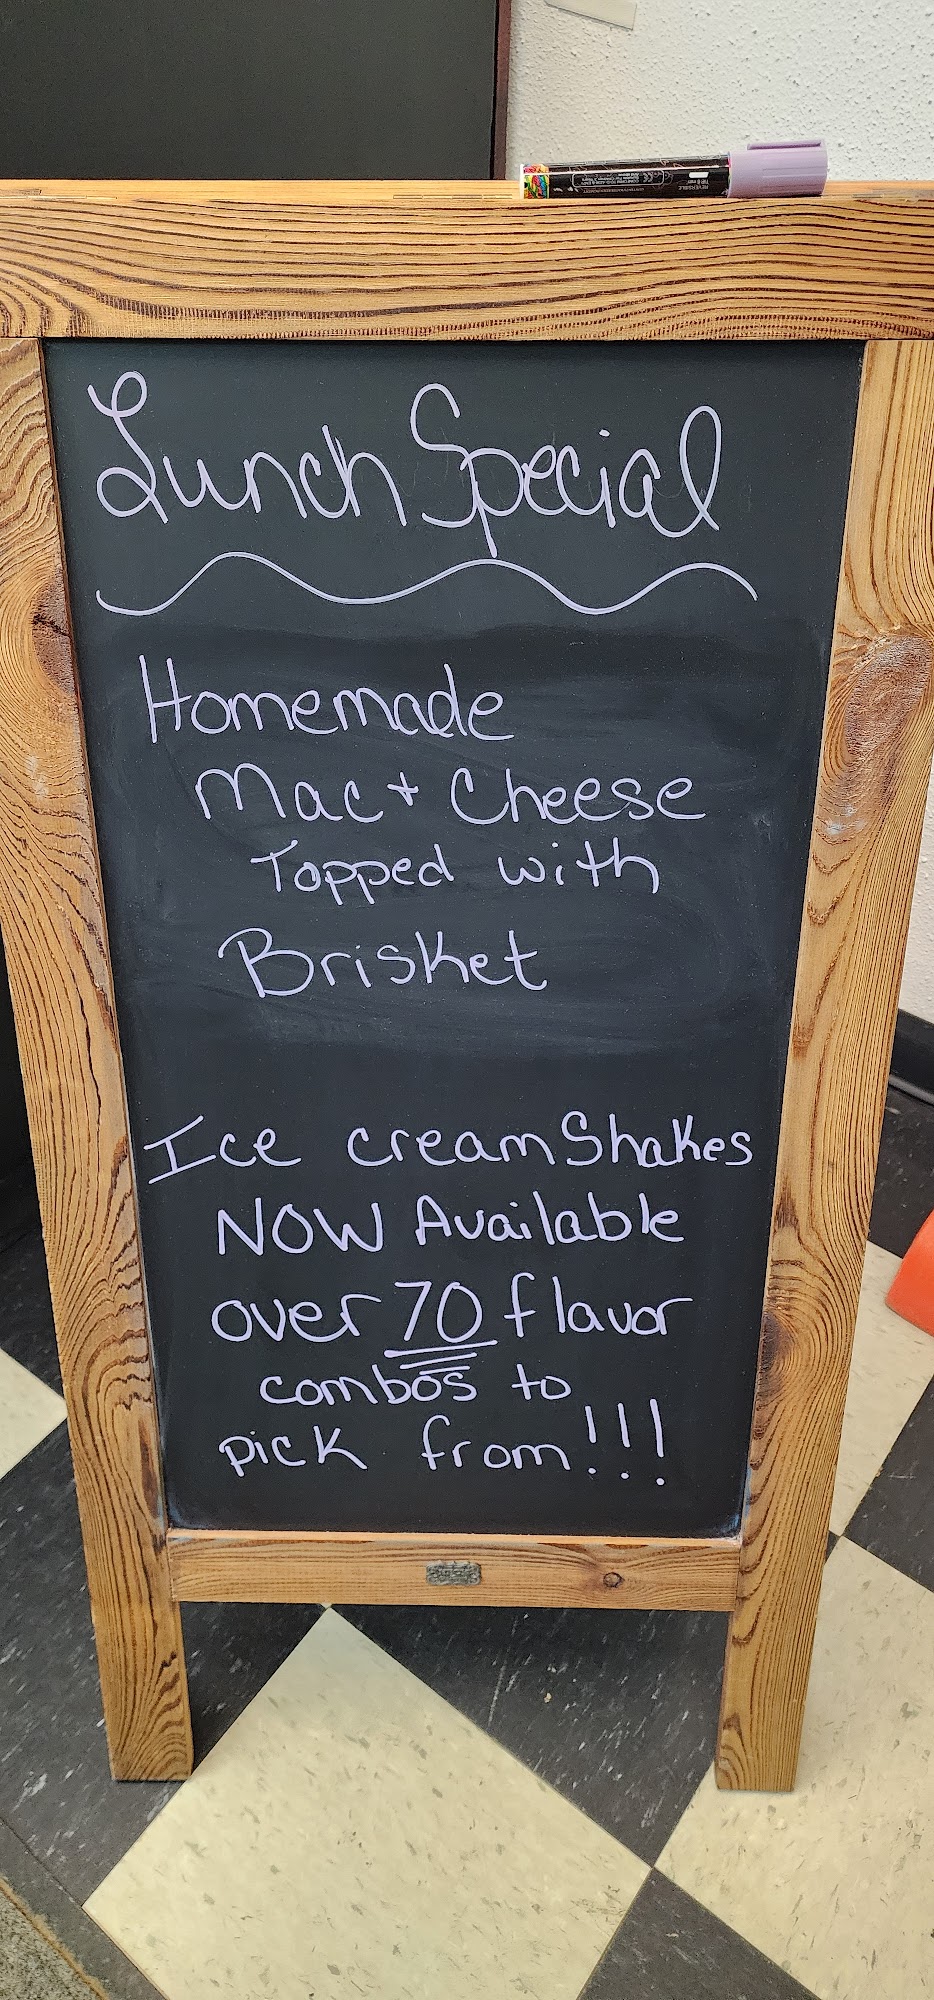 Lunch Special
Homemade
Mac + Cheese
Topped with
Brisket
Ice cream Shakes
NOW Available
over 70 flavor
combos to
pick from!!!